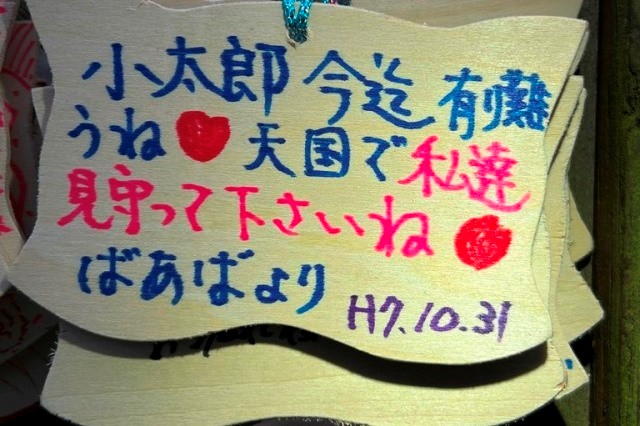 小太郎今迄有難
うね天国で私達
見守って下さいね
ばあばより
H7.10.31